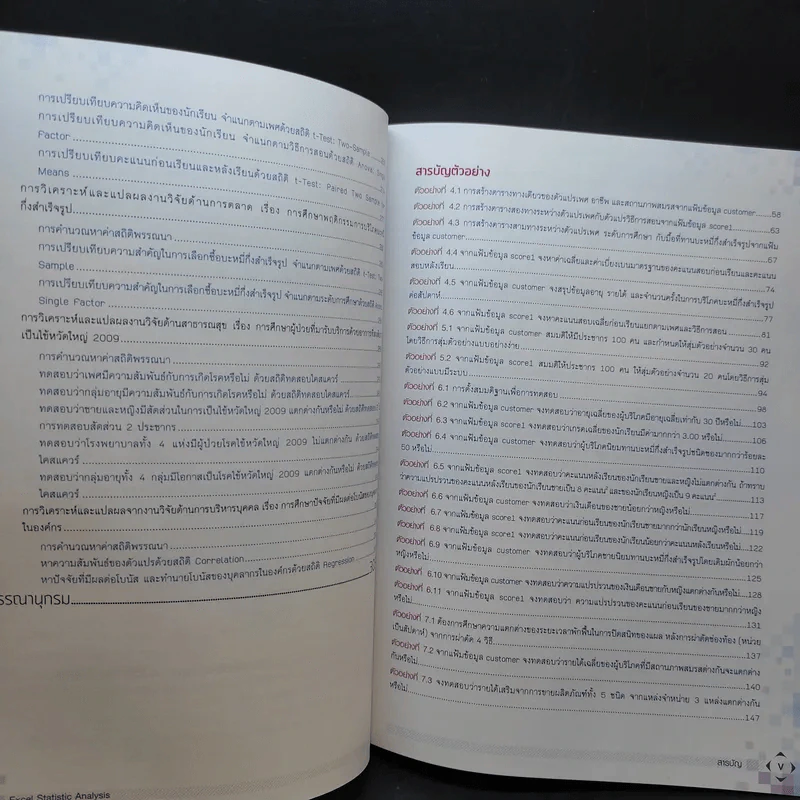 การเปรียบเทียบความคิดเห็นของนักเรียน จำแนกตามเพศด้วยสถิติ t-Test: Two-Sample
การเปรียบเทียบความคิดเห็นของนักเรียน จำแนกตามวิธีการสอนด้วยสถิติ Anova: Single
Factor
การเปรียบเทียบคะแนนก่อนเรียนและหลังเรียนด้วยสถิติ t-Test: Paired Two Sample for
Means
การวิเคราะห์และแปลผลงานวิจัยด้านการตลาด เรื่อง การศึกษาพฤติกรรมการบริโภคบะหมี่
กึ่งสำเร็จรูป
การคำนวณหาค่าสถิติพรรณนา
การเปรียบเทียบความสำคัญในการเลือกซื้อบะหมี่กึ่งสำเร็จรูป จำแนกตามเพศด้วยสถิติ t-Test:
Sample
การเปรียบเทียบความสำคัญในการเลือกซื้อบะหมี่กึ่งสำเร็จรูป จำแนกตามระดับการศึกษาด้วยสถิติ
Single Factor
การวิเคราะห์และแปลผลงานวิจัยด้านสาธารณสุข เรื่อง การศึกษาผู้ป่วยที่มารับบริการด้วยอาการ
เป็นไข้หวัดใหญ่ 2009
การคำนวณหาค่าสถิติพรรณนา
ทดสอบว่าเพศมีความสัมพันธ์กับการเกิดโรคหรือไม่ ด้วยสถิติทดสอบไคสแควร์
ทดสอบว่ากลุ่มอายุมีความสัมพันธ์กับการเกิดโรคหรือไม่ ด้วยสถิติทดสอบไคสแควร์
ทดสอบว่าชายและหญิงมีสัดส่วนในการเป็นไข้หวัดใหญ่ 2009 แตกต่างกันหรือไม่ ด้วยสถิติ
การทดสอบสัดส่วน 2 ประชากร
ทดสอบว่าโรงพยาบาลทั้ง 4 แห่งมีผู้ป่วยโรคไข้หวัดใหญ่ 2009 ไม่แตกต่างกัน ด้วยสถิติทดสอบ
ไคสแควร์
ทดสอบว่ากลุ่มอายุทั้ง 4 กลุ่มมีโอกาสเป็นโรคไข้หวัดใหญ่ 2009 แตกต่างกันหรือไม่ ด้วยสถิติทดสอบ
ไคสแควร์
การวิเคราะห์และแปลผลจากงานวิจัยด้านการบริหารบุคคล เรื่อง การศึกษาปัจจัยที่มีผลต่อโบนัสของบุคลากร
ในองค์กร
การคำนวณหาค่าสถิติพรรณนา
หาความสัมพันธ์ของตัวแปรด้วยสถิติ Correlation
หาปัจจัยที่มีผลต่อโบนัส และทำนายโบนัสของบุคลากรในองค์กรด้วยสถิติ Regression
รรณานุกรม
Excel Statistic Analysis
สารบัญตัวอย่าง
ตัวอย่างที่ 4.1 การสร้างตารางทางเดียวของตัวแปรเพศ อาชีพ และสถานภาพสมรสจากแฟ้มข้อมูล customer 58
ตัวอย่างที่ 4.2 การสร้างตารางสองทางระหว่างตัวแปรเพศกับตัวแปรวิธีการสอนจากแฟ้มข้อมูล score1 63
ตัวอย่างที่ 4.3 การสร้างตารางสามทางระหว่างตัวแปรเพศ ระดับการศึกษา กับมื้อที่ทานบะหมี่กึ่งสำเร็จรูปจากแฟ้ม
ข้อมูล customer 67
ตัวอย่างที่ 4.4 จากแฟ้มข้อมูล score1 จงหาค่าเฉลี่ยและค่าเบี่ยงเบนมาตรฐานของคะแนนสอบก่อนเรียนและคะแนน
สอบหลังเรียน 74
ตัวอย่างที่ 4.5 จากแฟ้มข้อมูล customer จงสรุปข้อมูลอายุ รายได้ และจำนวนครั้งในการบริโภคบะหมี่กึ่งสำเร็จรูป
ต่อสัปดาห์ 77
ตัวอย่างที่ 4.6 จากแฟ้มข้อมูล score1 จงหาคะแนนสอบเฉลี่ยก่อนเรียนแยกตามเพศและวิธีการสอน 81
ตัวอย่างที่ 5.1 จากแฟ้มข้อมูล customer สมมติให้มีประชากร 100 คน และกำหนดให้สุ่มตัวอย่างจำนวน 30 คน
โดยวิธีการสุ่มตัวอย่างแบบอย่างง่าย 92
ตัวอย่างที่ 5.2 จากแฟ้มข้อมูล score1 สมมติให้ประชากร 100 คน ให้สุ่มตัวอย่างจำนวน 20 คนโดยวิธีการสุ่ม
ตัวอย่างแบบมีระบบ 94
ตัวอย่างที่ 6.1 การตั้งสมมติฐานเพื่อการทดสอบ 98
ตัวอย่างที่ 6.2 จากแฟ้มข้อมูล customer จงทดสอบว่าอายุเฉลี่ยของผู้บริโภคมีอายุเฉลี่ยเท่ากับ 30 ปีหรือไม่ 103
ตัวอย่างที่ 6.3 จากแฟ้มข้อมูล score1 จงทดสอบว่าเกรดเฉลี่ยของนักเรียนมีค่ามากกว่า 3.00 หรือไม่ 106
ตัวอย่างที่ 6.4 จากแฟ้มข้อมูล customer จงทดสอบว่าผู้บริโภคนิยมทานบะหมี่กึ่งสำเร็จรูปชนิดซองมากกว่าร้อยละ
50 หรือไม่ 110
ตัวอย่างที่ 6.5 จากแฟ้มข้อมูล score1 จงทดสอบว่าคะแนนหลังเรียนของนักเรียนชายและหญิงไม่แตกต่างกัน ถ้าทราบ
ว่าความแปรปรวนของคะแนนหลังเรียนของนักเรียนชายเป็น 8 คะแนน² และของนักเรียนหญิงเป็น 9 คะแนน² 113
ตัวอย่างที่ 6.6 จากแฟ้มข้อมูล customer จงทดสอบว่าเงินเดือนของชายน้อยกว่าหญิงหรือไม่ 117
ตัวอย่างที่ 6.7 จากแฟ้มข้อมูล score1 จงทดสอบว่าคะแนนก่อนเรียนของนักเรียนชายมากกว่านักเรียนหญิงหรือไม่ 119
ตัวอย่างที่ 6.8 จากแฟ้มข้อมูล score1 จงทดสอบว่าคะแนนก่อนเรียนของนักเรียนน้อยกว่าคะแนนหลังเรียนหรือไม่ 122
ตัวอย่างที่ 6.9 จากแฟ้มข้อมูล customer จงทดสอบว่าผู้บริโภคชายนิยมทานบะหมี่กึ่งสำเร็จรูปโดยเติมผักน้อยกว่า
หญิงหรือไม่ 125
ตัวอย่างที่ 6.10 จากแฟ้มข้อมูล customer จงทดสอบว่าความแปรปรวนของเงินเดือนชายกับหญิงแตกต่างกันหรือไม่ 128
ตัวอย่างที่ 6.11 จากแฟ้มข้อมูล score1 จงทดสอบว่า ความแปรปรวนของคะแนนก่อนเรียนของชายมากกว่าหญิง
หรือไม่ 131
ตัวอย่างที่ 7.1 ต้องการศึกษาความแตกต่างของระยะเวลาพักฟื้นในการปิดสนิทของแผล หลังการผ่าตัดช่องท้อง (หน่วย
เป็นสัปดาห์) จากการผ่าตัด 4 วิธี 137
ตัวอย่างที่ 7.2 จากแฟ้มข้อมูล customer จงทดสอบว่ารายได้เฉลี่ยของผู้บริโภคที่มีสถานภาพสมรสต่างกันจะแตกต่าง
กันหรือไม่ 140
ตัวอย่างที่ 7.3 จงทดสอบว่ารายได้เสริมจากการขายผลิตภัณฑ์ทั้ง 5 ชนิด จากแหล่งจำหน่าย 3 แหล่งแตกต่างกัน
หรือไม่ 147
สารบัญ V